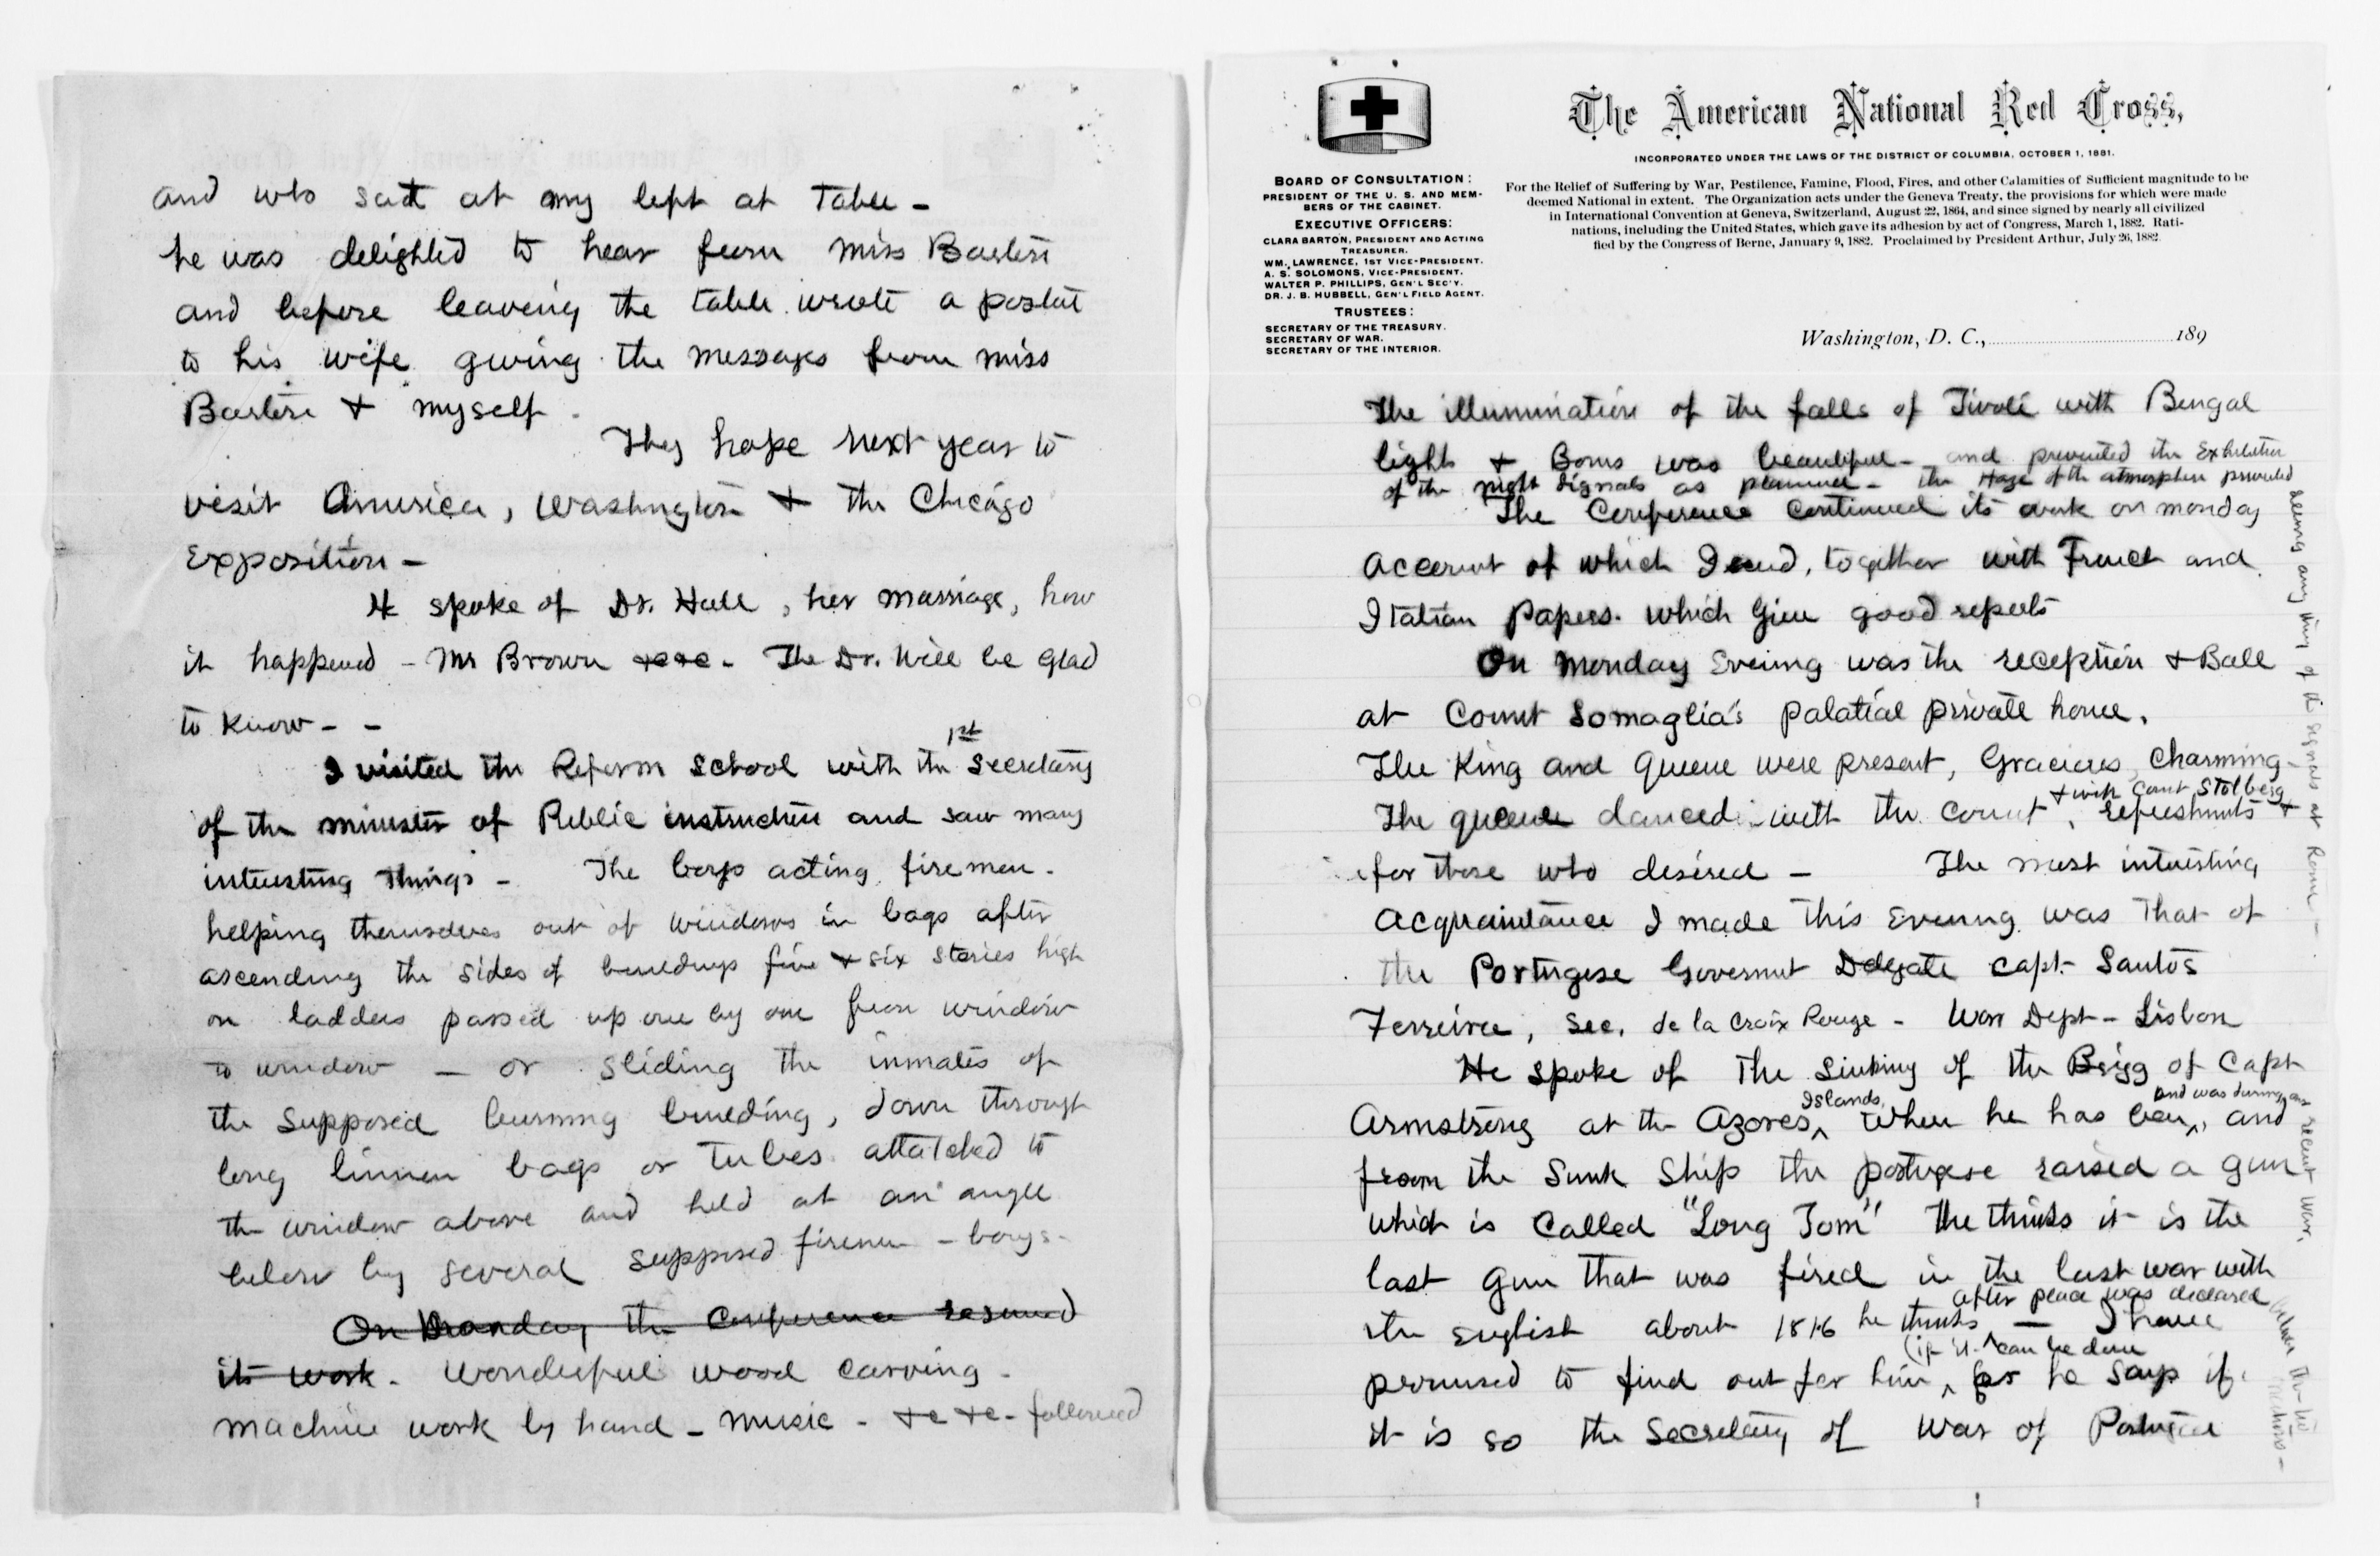 and who sat at my left at table -
he was delighted to hear from Miss Barton
and before leaving the table wrote a postal
to his wife giving the messages from Miss
Barton & myself.
They hope next year to
visit America, Washington & the Chicago
Exposition -
He spoke of Dr. Hall, her marriage, how
it happened - Mr Brown &c &c - The Dr. will be glad
to know - -
I visited the Reform School with the 1st Secretary
of the minister of Public instruction and saw many
interesting things - The boys acting firemen -
helping themselves out of windows in bags after
ascending the sides of buildings five & six stories high
on ladders passed up one by one from window
to window - or sliding the inmates of
the supposed burning building, down through
long linnen bags or tubes attatched to
the window above and held at an angle
below by several supposed firemen - boys -
On Monday the Conference resumed
its work. Wonderful wood carving -
machine work by hand - music - &c &c - followed
The American National Red Cross,
INCORPORATED UNDER THE LAWS OF THE DISTRICT OF COLUMBIA, OCTOBER 1, 1881.
For the Relief of Suffering by War, Pestilence, Famine, Flood, Fires, and other Calamities of Sufficient magnitude to be
deemed National in extent. The Organization acts under the Geneva Treaty, the provisions for which were made
in International Convention at Geneva, Switzerland, August 22, 1864, and since signed by nearly all civilized
nations, including the United States, which gave its adhesion by act of Congress, March 1, 1882. Rati-
fied by the Congress of Berne, January 9, 1882. Proclaimed by President Arthur, July 26, 1882.
BOARD OF CONSULTATION:
PRESIDENT OF THE U. S. AND MEM-
BERS OF THE CABINET.
EXECUTIVE OFFICERS:
CLARA BARTON, PRESIDENT AND ACTING
TREASURER.
WM. LAWRENCE, 1ST VICE-PRESIDENT.
A. S. SOLOMONS, VICE-PRESIDENT.
WALTER P. PHILLIPS, GEN'L SEC'Y.
DR. J. B. HUBBELL, GEN'L FIELD AGENT.
TRUSTEES:
SECRETARY OF THE TREASURY.
SECRETARY OF WAR.
SECRETARY OF THE INTERIOR.
Washington, D. C., 189
The illumination of the falls of Tivoli with Bengal
lights & Boms was beautiful - and prevented the Exhibition
of the night signals as planned - the Haze of the atmosphere prevented
seeing any thing of the signals at Rome -
The Conference continued its work on monday
account of which I send, together with French and
Italian Papers. which give good reports
On Monday Evening was the reception & Ball
at Count Somaglia's palatial private home.
The King and Queen were present, Gracious, Charming -
The queen danced with the Count & with Count Stolberg, refreshments &
for those who desired - The most interesting
acquaintance I made this Evening was that of
the Portugese Goverment Delegate Capt. Santos
Ferreira, Sec. de la Croix Rouge - War Dept - Lisbon
He spoke of the sinking of the Brigg of Capt
Armstrong at the Azores Islands, when he has been, and was during our recent war, and
from the Sunk Ship the portugese raised a gun
which is called "Long Tom" He thinks it is the
last gun that was fired in the last war with
the English about 1816 he thinks after peace was declared - I have
promised to find out for him (if it can be done, for he says if
it is so the Secretary of War of Portugal